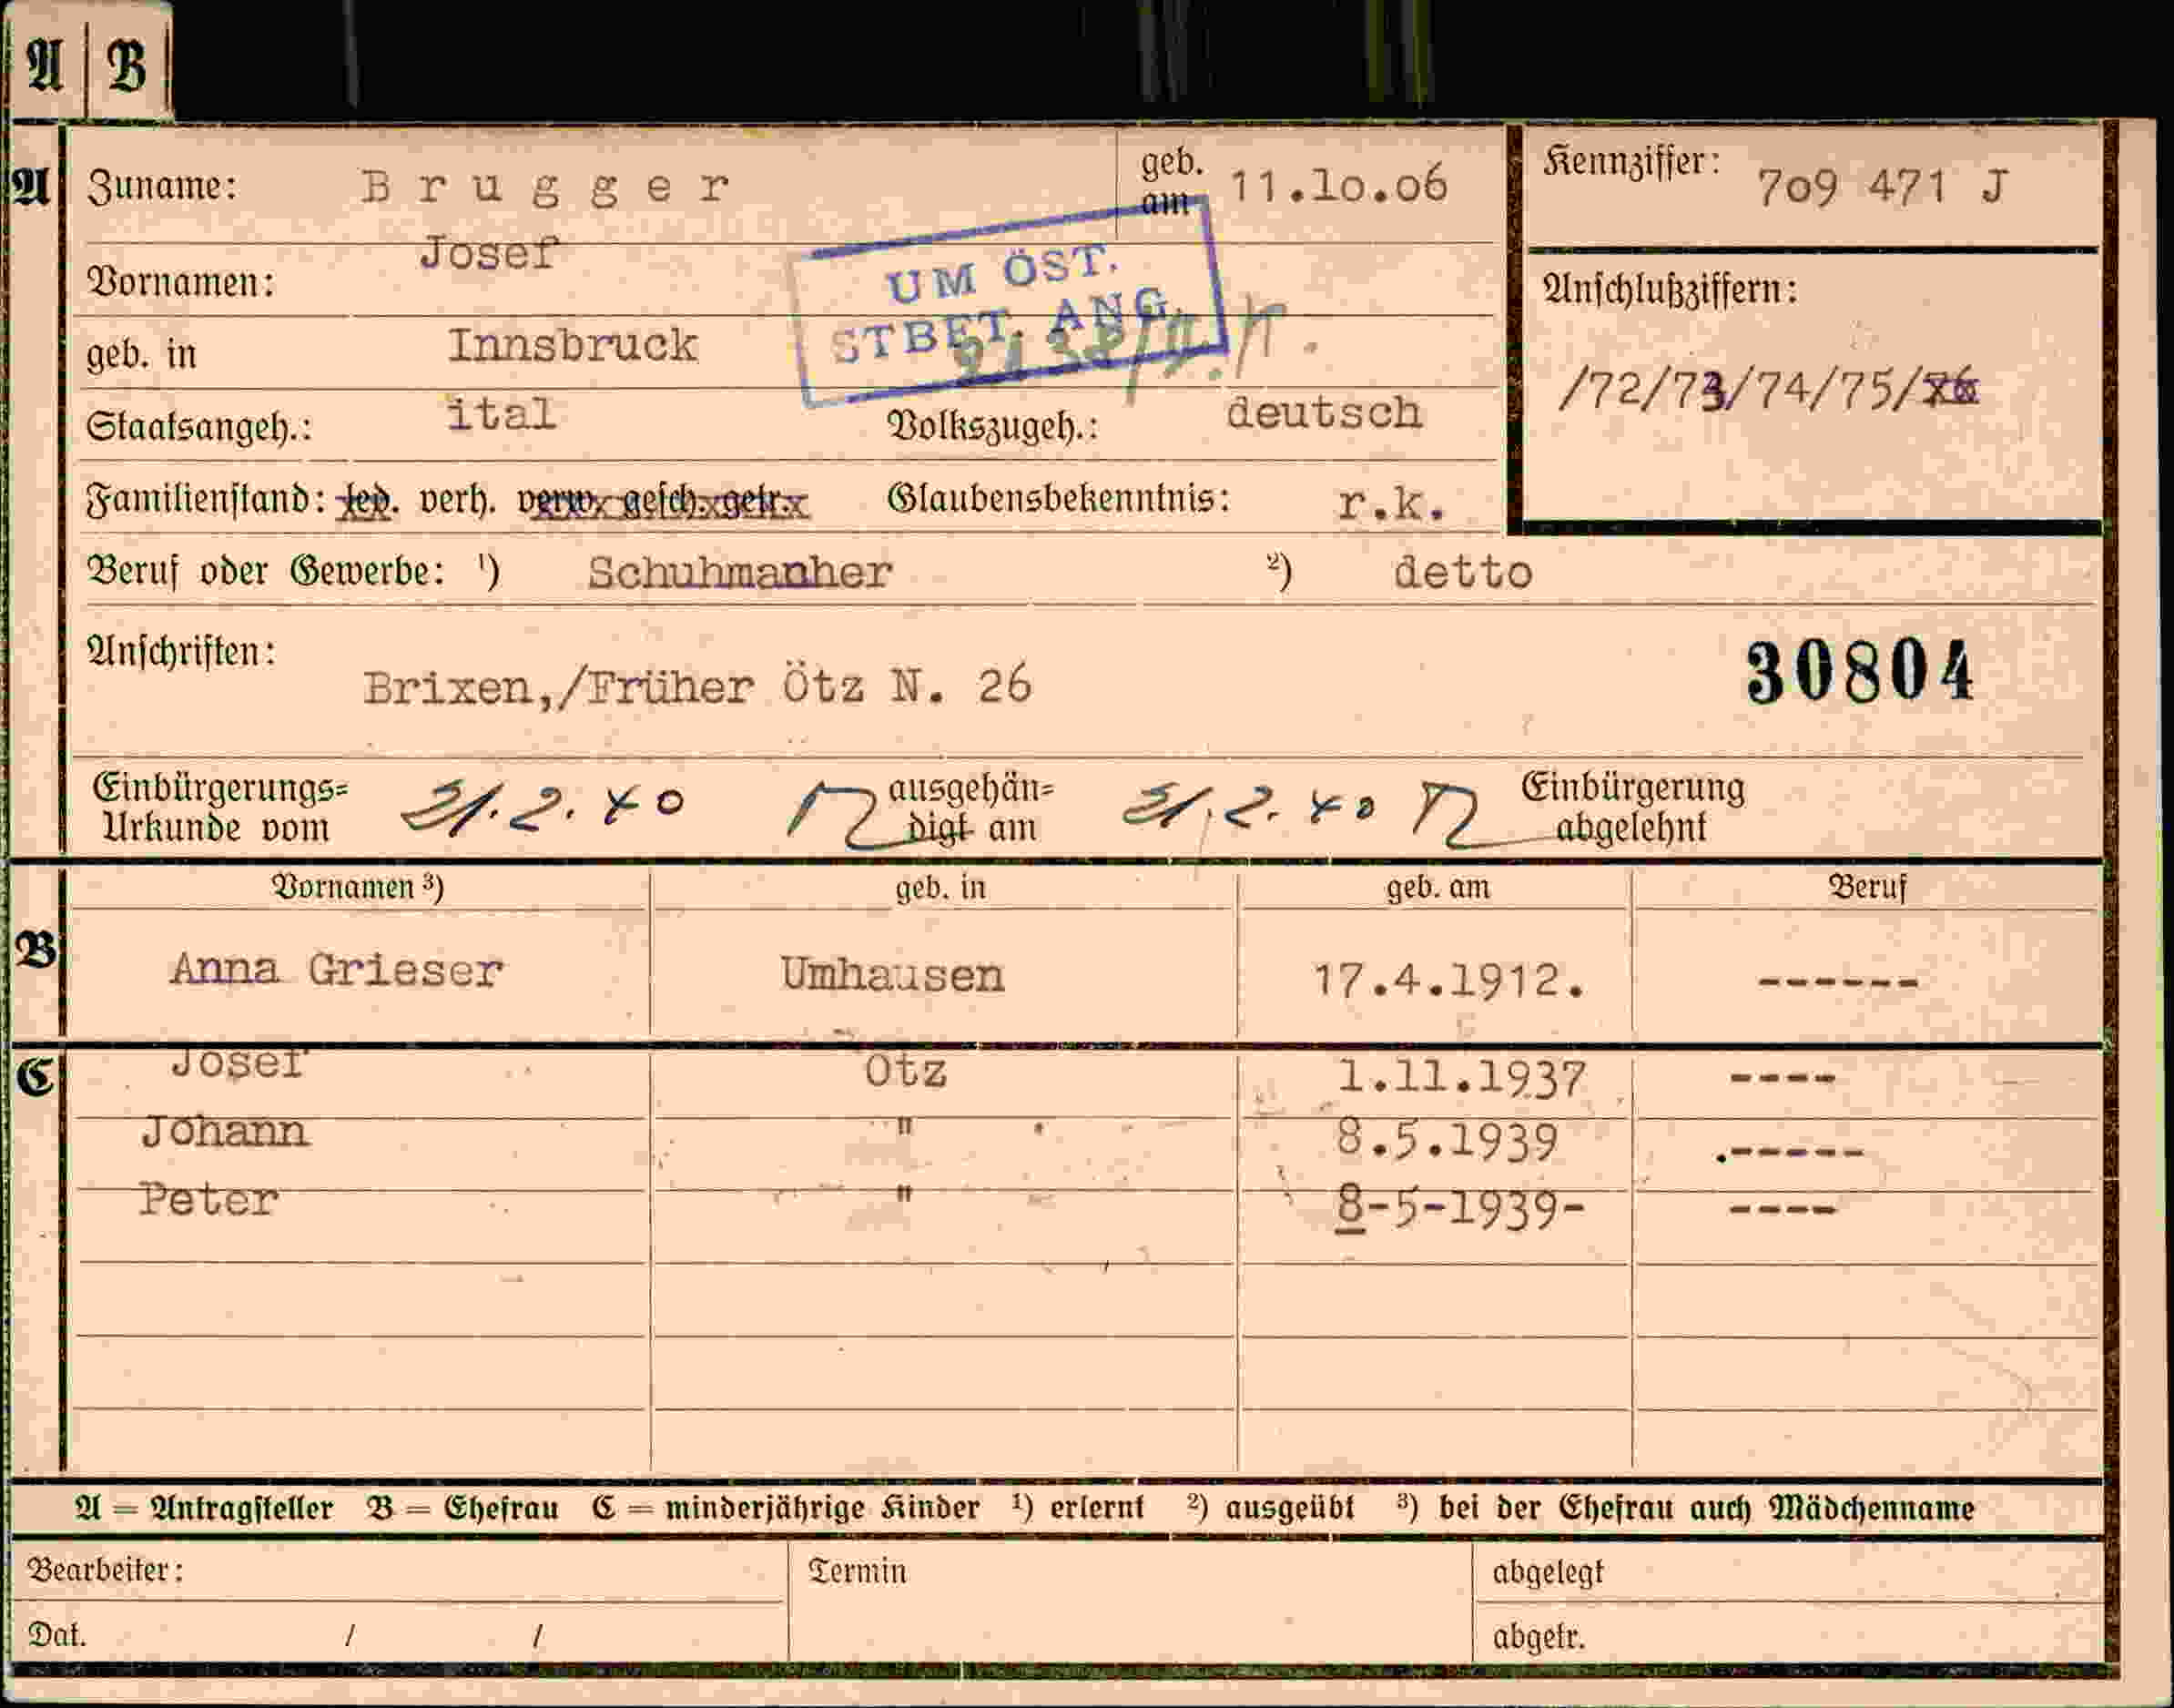 A B
A Zuname: Brugger geb. am 11.10.06 Kennziffer: 709 471 J
Vornamen: Josef
UM ÖST.
STBET. ANG.
Anschlußziffern:
geb. in Innsbruck
/72/73/74/75/
Staatsangeh.: ital Volkszugeh.: deutsch
Familienstand: led. verh. verw. gesch. getr. Glaubensbekenntnis: r.k.
Beruf oder Gewerbe: ¹) Schuhmanher ²) detto
Anschriften: 30804
Brixen,/Früher Ötz N. 26
Einbürgerungs= ausgehän= Einbürgerung
Urkunde vom 21.2.40 digt am 21.2.40 abgelehnt
Vornamen ³) geb. in geb. am Beruf
B Anna Grieser Umhausen 17.4.1912. ------
C Josef Ötz 1.11.1937 ----
Johann " 8.5.1939 .-----
Peter " 8-5-1939- ----
A = Antragsteller B = Ehefrau C = minderjährige Kinder ¹) erlernt ²) ausgeübt ³) bei der Ehefrau auch Mädchenname
Bearbeiter: Termin abgelegt
Dat. / / abgetr.